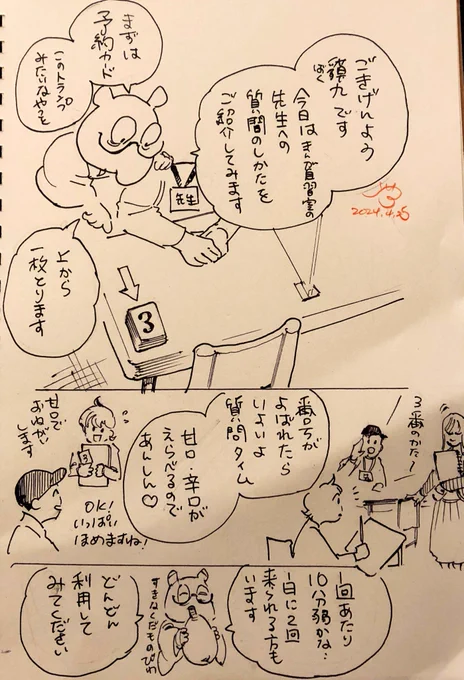 ごきげんよう
獏九です
ばく
今日はまんが自習室の
先生への
質問のしかたを
ご紹介してみます
2024.4.26
まずは
予約カード
このトランプ
みたいなやつを
先生
上から
一枚とります
3
3番のかた〜
番号が
よばれたら
いよいよ
質問タイム
甘口・辛口が
えらべるので
あんしん♡
甘口で
おねがい
します
3
OK!
いっぱい
ほめますね!
1回あたり
10分弱かな…
1日に2回
来られる方も
います
すきなくだものびわ
どんどん
利用して
みてください